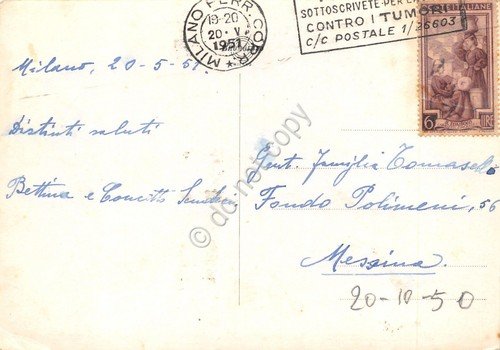 MILANO FERR. CORR.
19-20
20·V
1951
SOTTOSCRIVETE·PER
CONTRO I TUMORI
c/c POSTALE 1/25603
POSTE ITALIANE
6 LIRE
Milano, 20-5-51.
Distinti saluti
Bettina e
Gent. Famiglia Tomasello
Fondo Polimeni, 56
Messina
20-10-50
do not copy